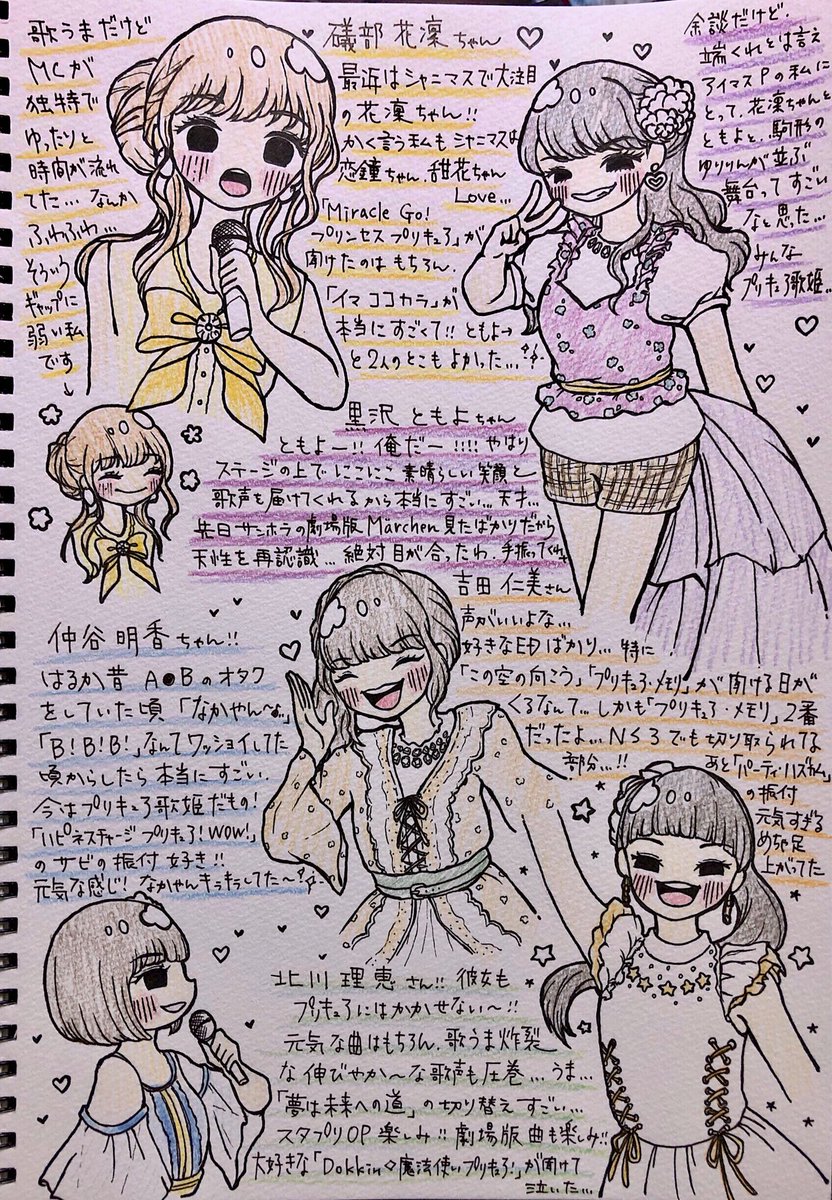 歌うまだけど
MCが
独特で
ゆったりと
時間が流れ
てた…なんか
ふわふわ…
そういう
ギャップに
弱い私
です→
礒部 花凜ちゃん♡
最近はシャニマスで大注目
の花凜ちゃん!!
かく言う私もシャニマスは
恋鐘ちゃん、甜花ちゃん
Love…
「Miracle Go!
プリンセスプリキュア」が
聞けたのはもちろん、
「イマココカラ」が
本当にすごくて!!ともよ→
と2人のとこもよかった…
余談だけど、
端くれとは言え
アイマスPの私に
とって、花凜ちゃんと
ともよと、駒形の
ゆりりんが並ぶ
舞台ってすごい
なと思った…
みんな
プリキュア歌姫…
黒沢 ともよちゃん
ともよー!!俺だー!!!!やはり
ステージの上でにこにこ素晴らしい笑顔と
歌声を届けてくれるから本当にすごい…天才…
先日サンホラの劇場版Märchen見たばかりだから
天性を再認識…絶対目が合ったわ、手振ってくれ
吉田 仁美さん
声がいいよな…
好きなEDばかり…特に
「この空の向こう」「プリキュア・メモリ」が聞ける日が
くるなんて…しかも「プリキュア・メモリ」2番
だったよ…NS3でも切り取られてる
部分…!!
あと「パーティハズカム」
の振付
元気すぎる
めちゃ足
上がってた
仲谷 明香ちゃん!!
はるか昔A●Bのオタク
をしていた頃「なかやん〜」
「B!B!B!」なんてワッショイしてた
頃からしたら本当にすごい、
今はプリキュア歌姫だもの!
「ハピネスチャージプリキュア!WOW!」
のサビの振付 好き!!
元気な感じ!なかやんキラキラしてた〜
北川 理恵さん!!彼女も
プリキュアにはかかせない〜!!
元気な曲はもちろん、歌うま炸裂
な伸びやか〜な歌声も圧巻…うま…
「夢は未来への道」の切り替えすごい…
スタプリOP楽しみ!!劇場版曲も楽しみ!!
大好きな「Dokkin◇魔法使いプリキュア!」が聞けて
泣いた…